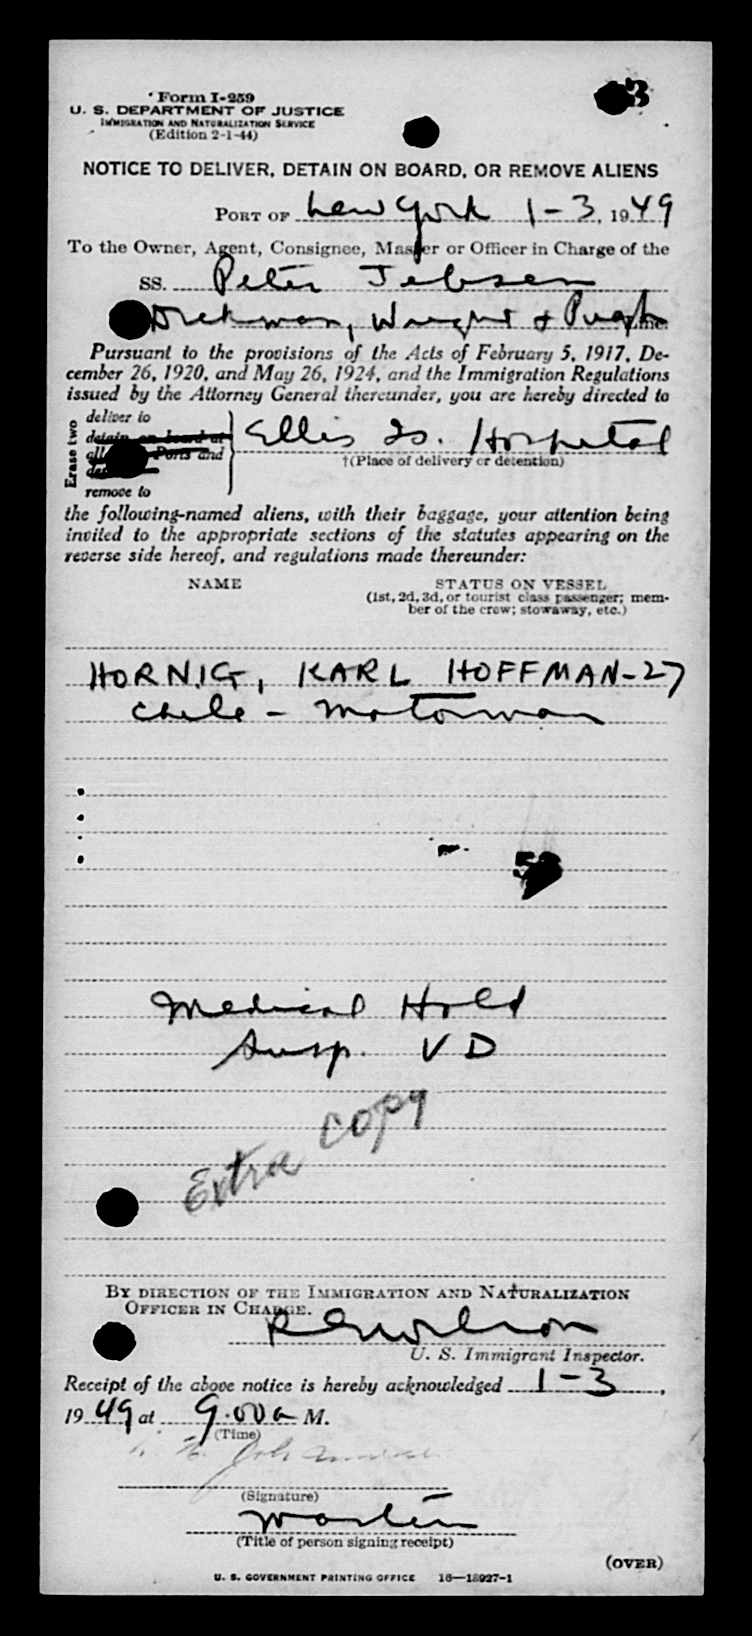 Form I-259
3
U. S. DEPARTMENT OF JUSTICE
IMMIGRATION AND NATURALIZATION SERVICE
(Edition 2-1-44)
NOTICE TO DELIVER, DETAIN ON BOARD, OR REMOVE ALIENS
PORT OF New York 1-3, 1949
To the Owner, Agent, Consignee, Master or Officer in Charge of the
SS. Peter Jebsen
Dickman, Wright & Pugh
Pursuant to the provisions of the Acts of February 5, 1917, De-
cember 26, 1920, and May 26, 1924, and the Immigration Regulations
issued by the Attorney General thereunder, you are hereby directed to
Erase two
deliver to
detain on board at
all Ports and
remove to
Ellis Is. Hospital
†(Place of delivery or detention)
the following-named aliens, with their baggage, your attention being
invited to the appropriate sections of the statutes appearing on the
reverse side hereof, and regulations made thereunder:
NAME STATUS ON VESSEL
(1st, 2d, 3d, or tourist class passenger; mem-
ber of the crew; stowaway, etc.)
HORNIG, KARL HOFFMAN-27
Chile - Motorman
Medical Hold
Susp. VD
Extra copy
BY DIRECTION OF THE IMMIGRATION AND NATURALIZATION
OFFICER IN CHARGE.
Wilson
U. S. Immigrant Inspector.
Receipt of the above notice is hereby acknowledged 1-3,
1949 at 9.00 a M.
(Time)
(Signature)
Master
(Title of person signing receipt)
(OVER)
U. S. GOVERNMENT PRINTING OFFICE 16—18927-1